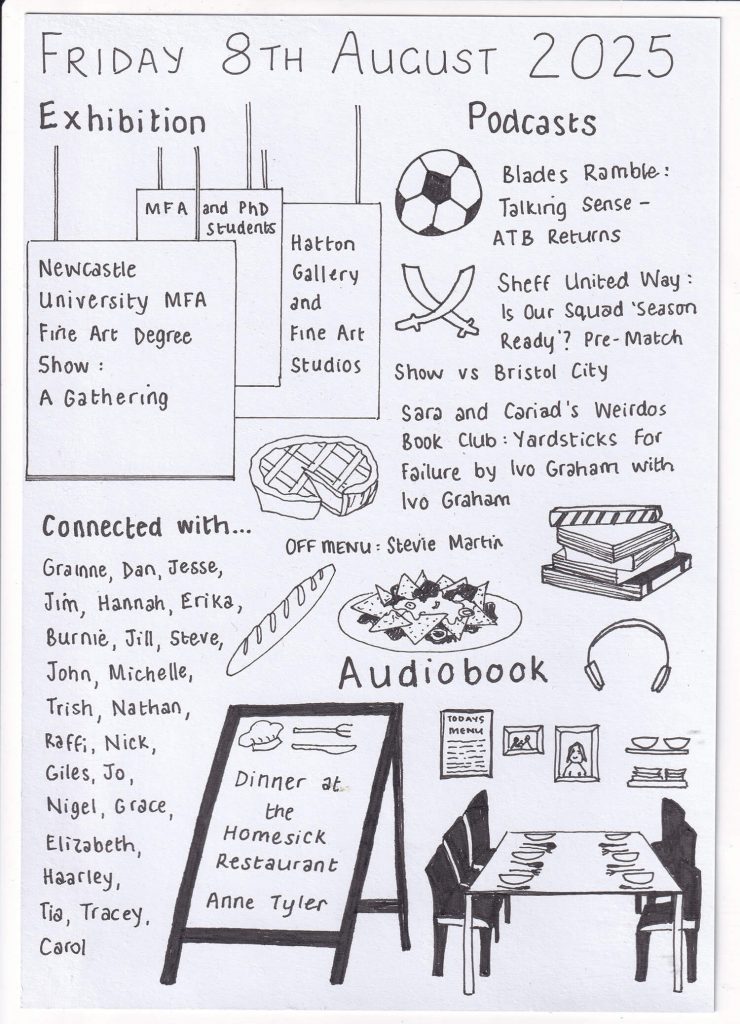 FRIDAY 8TH AUGUST 2025
Exhibition
MFA and PhD
students
Newcastle
University MFA
Fine Art Degree
Show:
A Gathering
Hatton
Gallery
and
Fine Art
Studios
Podcasts
Blades Ramble:
Talking Sense -
ATB Returns
Sheff United Way:
Is Our Squad 'Season
Ready'? Pre-Match
Show vs Bristol City
Sara and Cariad's Weirdos
Book Club: Yardsticks For
Failure by Ivo Graham with
Ivo Graham
OFF MENU: Stevie Martin
Connected with...
Grainne, Dan, Jesse,
Jim, Hannah, Erika,
Burnie, Jill, Steve,
John, Michelle,
Trish, Nathan,
Raffi, Nick,
Giles, Jo,
Nigel, Grace,
Elizabeth,
Haarley,
Tia, Tracey,
Carol
Audiobook
Dinner at
the
Homesick
Restaurant
Anne Tyler
TODAYS
MENU